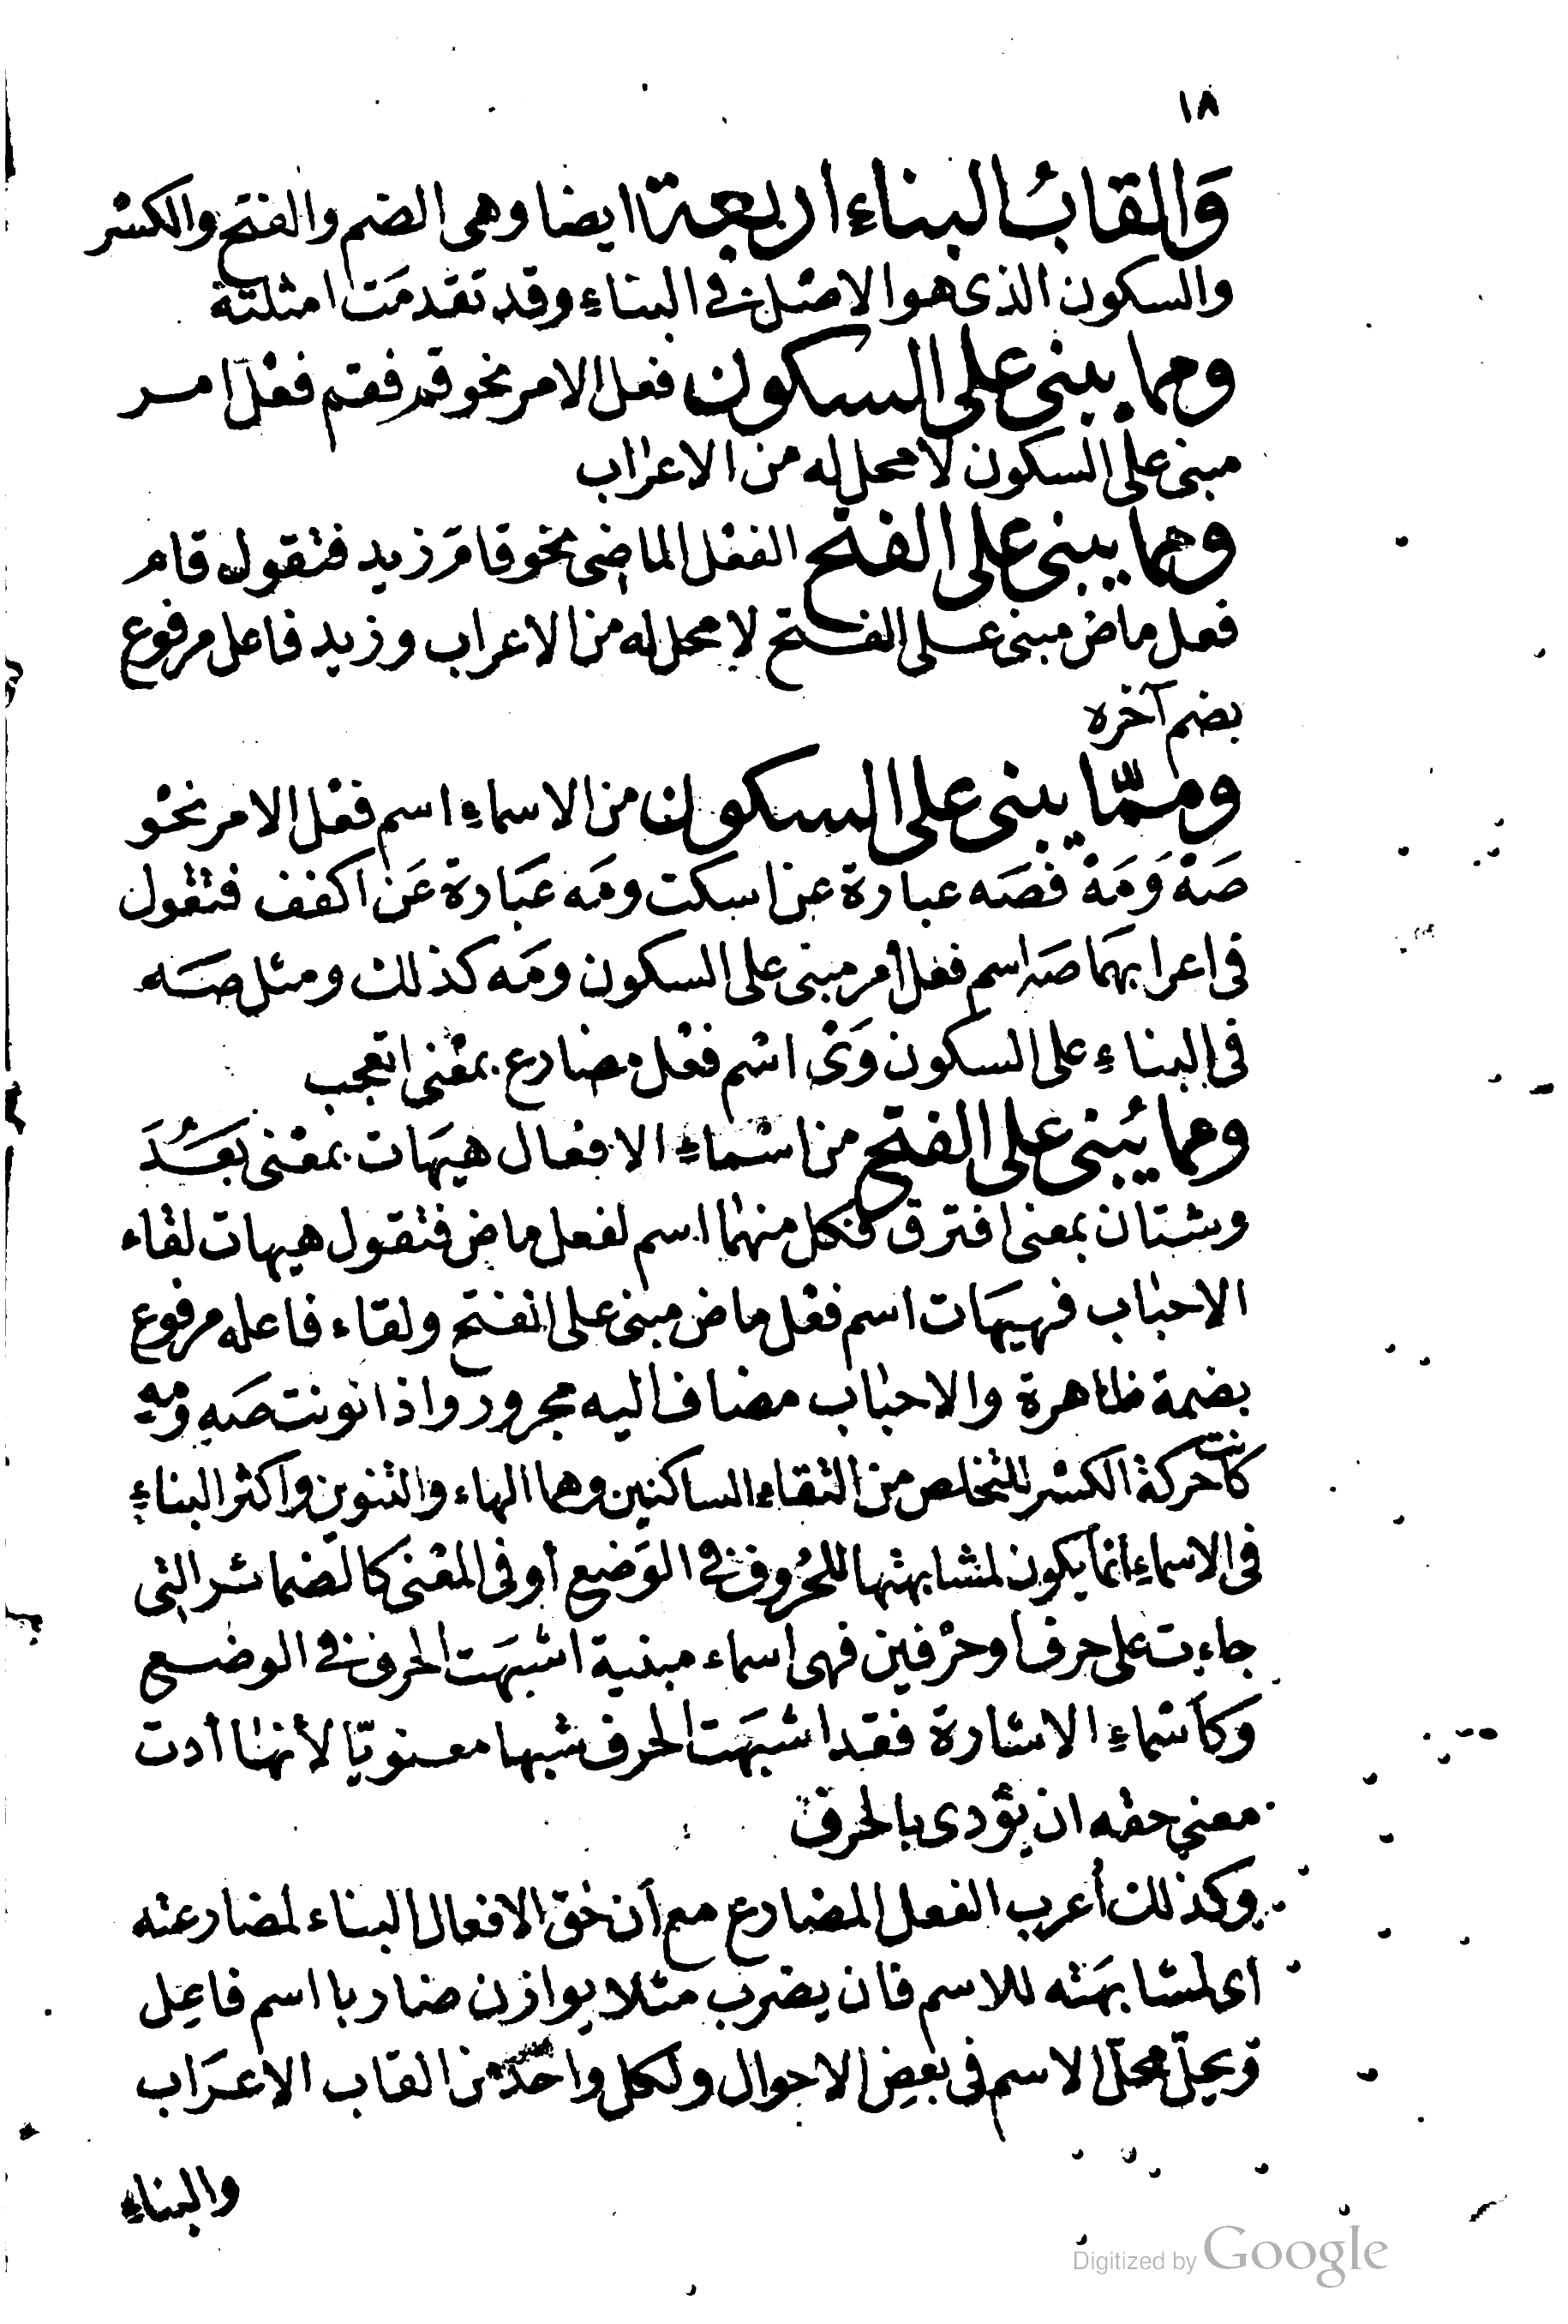 ١٨
وَالقابُ البناءِ اربعة ايضا وهى الضم والفتح والكسْر
والسكون الذى هو الاصْل فى البناءِ وقد تقدمَت امثلته
ومما يبنى على السكون فعل الامر نحو قم فقم فعْل امر
مبنى على السكون لا محل له من الاعراب
ومما يبنى على الفتح الفعْل الماضى نحو قامَ زيد فتقول قام
فعل ماض مبنى على الفتح لا محل له من الاعراب وزيد فاعل مرفوع
بضم آخره
وممّا يبنى على السكون من الاسماءِ اسم فعْل الامر نحْو
صَهْ وَمَهْ فصَه عبارة عن اسكت ومَه عبَارة عَن اكفف فتقول
فى اعرابهمَا صَه اسم فعل أمر مبنى على السكون ومَه كذلك ومثل صَه
فى البناءِ على السكون وَىْ اسْم فعْل مضارع بمعْنى اتعجب
ومما يُبنى على الفتح من اسْماءِ الافعال هيهَات بمعْنى بَعُدَ
وشتان بمعنى افترق فكل منهما اسم لفعل ماض فتقول هيهات لقاء
الاحباب فهيهَات اسم فعْل ماض مبنى على الفتح ولقاء فاعله مرفوع
بضمة ظاهرة والاحباب مضاف اليه مجرور واذا نونت صَهٍ ومهٍ
كانت حركة الكسْر للتخلص من التقاءِ الساكنين وهما الهاء والتنوين واكثر البناءِ
فى الاسماءِ انمَا يكون لمشابهتها للحُروف فى الوَضع أو فى المعْنى كالضمائر التى
جاءت على حرف او حرْفين فهى اسماء مبنية اشبهَت الحرف فى الوضع
وَكأسْماءِ الاشارة فقد اشبَهَت الحرف شبها معنويّا لأنها أدت
معنى حقه ان يؤدى بالحرف
وكذلك أعرب الفعل المضارع مع أن حَق الافعال البناء لمضارعته
اى لمشابهَته للاسم فان يضرب مثلا يوازن ضاربا اسم فاعِل
وَيحلّ محلّ الاسم فى بعض الاحوال ولكل واحد من القاب الاعرَاب
والبناءِ
Digitized by Google